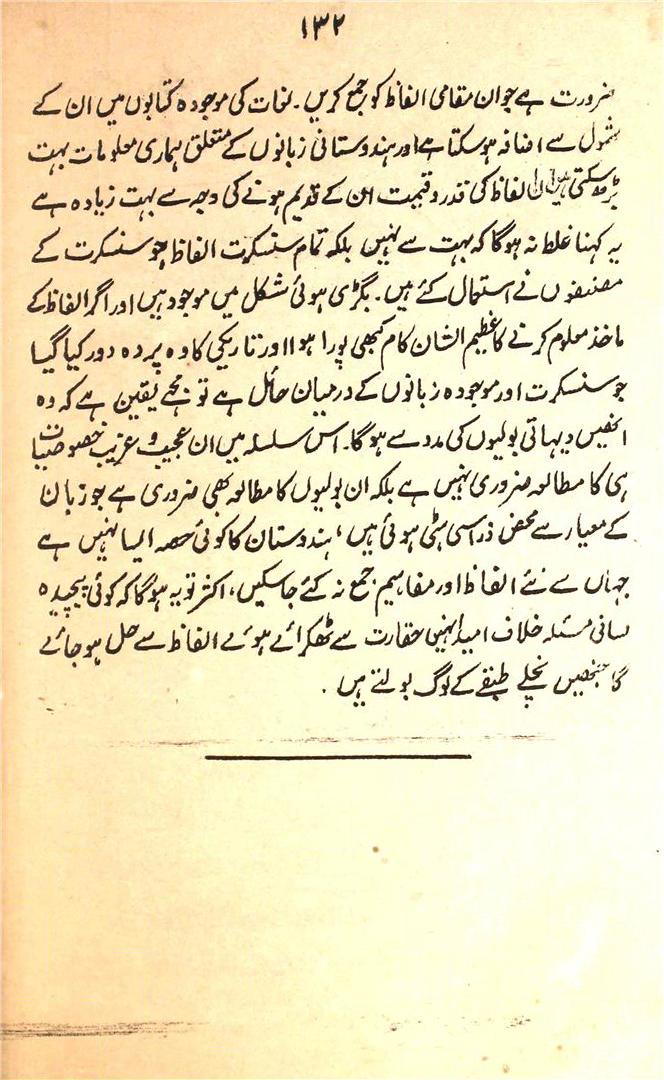 ۱۳۲
ضرورت ہے جو ان مقامی الفاظ کو جمع کریں۔ لغات کی موجودہ کتابوں میں ان کے
شمول سے اضافہ ہو سکتا ہے اور ہندوستانی زبانوں کے متعلق ہماری معلومات بہت
بڑھ سکتی ہیں ان الفاظ کی قدر و قیمت ان کے قدیم ہونے کی وجہ سے بہت زیادہ ہے
یہ کہنا غلط نہ ہوگا کہ بہت سے نہیں بلکہ تمام سنسکرت الفاظ جو سنسکرت کے
مصنفوں نے استعمال کئے ہیں۔ بگڑی ہوئی شکل میں موجود ہیں اور اگر الفاظ کے
ماخذ معلوم کرنے کا عظیم الشان کام کبھی پورا ہوا اور تاریکی کا وہ پردہ دور کیا گیا
جو سنسکرت اور موجودہ زبانوں کے درمیان حائل ہے تو مجھے یقین ہے کہ وہ
انھیں دیہاتی بولیوں کی مدد سے ہوگا۔ اس سلسلہ میں ان عجیب و غریب خصوصیات
ہی کا مطالعہ ضروری نہیں ہے بلکہ ان بولیوں کا مطالعہ بھی ضروری ہے جو زبان
کے معیار سے محض ذرا سی ہٹی ہوئی ہیں، ہندوستان کا کوئی حصہ ایسا نہیں ہے
جہاں سے نئے الفاظ اور مفاہیم جمع نہ کئے جا سکیں، اکثر تو یہ ہوگا کہ کوئی پیچیدہ
لسانی مسئلہ خلاف امید انہیں حقارت سے ٹھکرائے ہوئے الفاظ سے حل ہو جائے
گا جنھیں نچلے طبقے کے لوگ بولتے ہیں۔